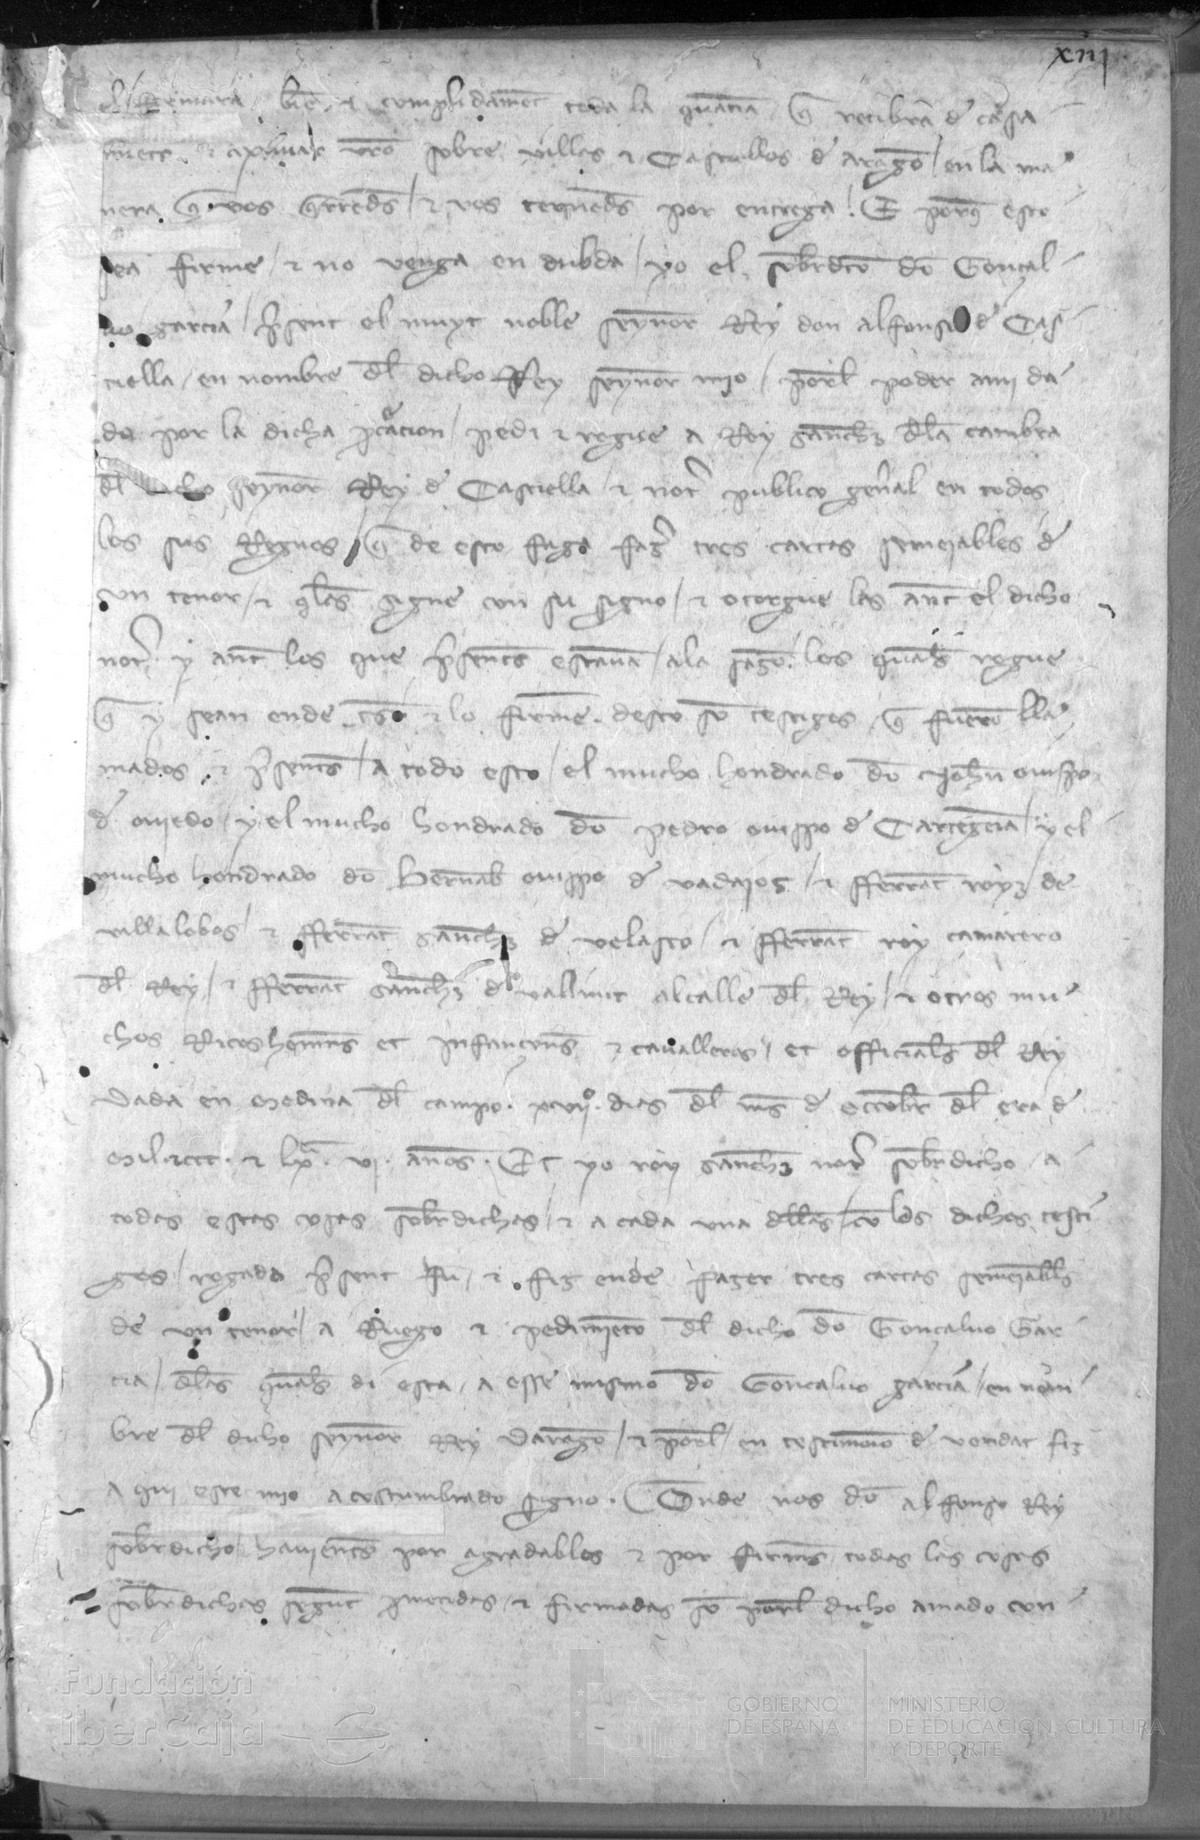 xiij
bie & complidament toda la quātia q̄ recibrā d' casa
ment & vr̄o sobre villas & Castiellos d' aragō / en la ma
nera q̄ vos / & vos por entrega. E porq̄ esto
sea firme / & no venga en dubda / yo el sobrdc̄o dō Gonçal
uo garcia / p̄sent el muyt noble seynnor Rey don alfonso d' Cas
tiella / en nombre dl̄ dicho Rey seynnor mio / porl̄ poder a mi da
do por la dicha pc̄acion / pedi & rogue a Roy Sanch3 dl̄a cambra
dl̄ dicho seynnor Rey d' Castiella & not' publico gn̄al en todos
los sus Regnos / q̄ de esto faga fag' tres cartas semeiables d'
un tenor / & q̄les signe con su signo / & otorgue las ant el dicho
not' y ant los que p̄sents estauā / a la sagō. los quals rogue
q̄ y sean ende & lo firme. desto sō testigos q̄ fuerō lla
mados & p̄sents / a todo esto / el mucho hondrado dō John̄ ouispo
d' ouiedo / y el mucho hondrado dō pedro ouispo d' Cartegēia / y el
mucho hondrado dō Bernab ouispo d' vadaioz / & fferrāt roy3 de
villalobos / & fferrāt sanch3 d' velasco / & fferrāt roy camarero
dl̄ Rey / & fferrāt sanch3 d' vallit alcalle dl̄ Rey / & otros mu
chos Ricos hōms et Infançōns & caualleros / et officials dl̄ Rey
Dada en Medina dl̄ campo. xvijº. dias dl̄ ms̄ d' octobr̄ dl̄ era d'
Mil. ccc. & lxª. vj. annos. Et yo roy sanch3 not' sobrdicho a
todas estas cosas sobrdichas / & a cada una dllas / cō los dichos testi
gos / rogado p̄sent fu / & fiz ende fazer tres cartas semeiabls
de un tenor / a Ruego & pedimiēto dl̄ dicho dō Goncaluo Gar
cia / dl̄as quals di esta / a esse mismo dō Goncaluo garcia / en nom
bre dl̄ dicho seynnor Rey Daragō / & porl̄ / en testimōio d' verdat fiz
aqui este mio acostumbrado signo. Onde nos dō alfonso Rey
sobrdicho / hauients por agradables & por firms todas las cosas
sobrdichas segunt pmetidas & firmadas sō porl̄ dicho amado con
Fundación
iberCaja
GOBIERNO
DE ESPAÑA
MINISTERIO
DE EDUCACIÓN, CULTURA
Y DEPORTE